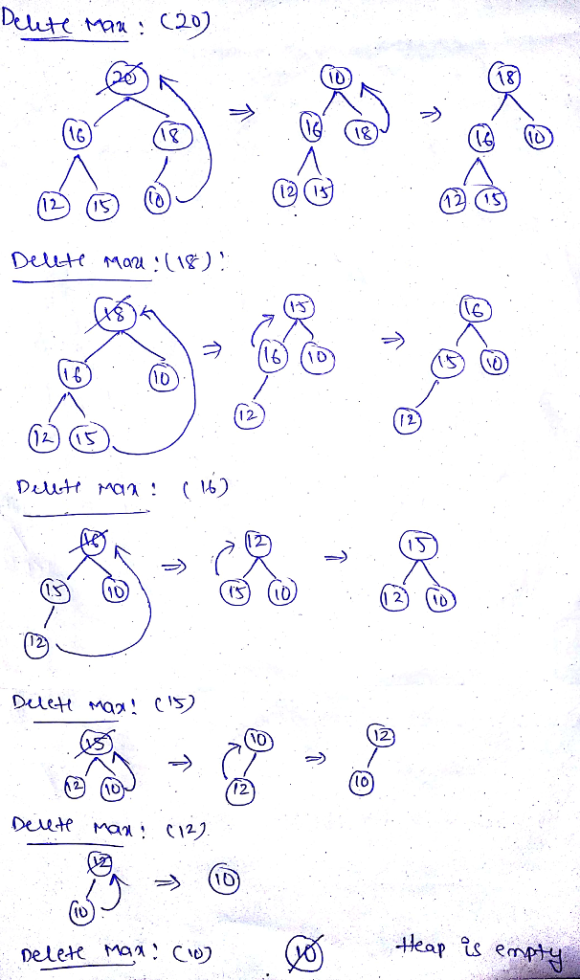 Delete Max : (20)
20 ⇒ 10 ⇒ 18
16 18 16 18 16 10
12 15 10 12 15 12 15
Delete Max : (18) :
18 ⇒ 15 ⇒ 16
16 10 16 10 15 10
12 15 12 12
Delete Max : (16)
16 ⇒ 12 ⇒ 15
15 10 15 10 12 10
12
Delete Max : (15)
15 ⇒ 10 ⇒ 12
12 10 12 10
Delete Max : (12)
12 ⇒ 10
10
Delete Max : (10) 10 Heap is empty